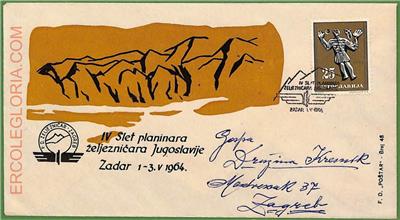 ERCOLEGLORIA.COM
25
ЈУГОСЛАВИЈА
IV SLET PLANINARA
ZADAR 1-3.V 1964
IV Slet planinara
željezničara Jugoslavije
Zadar 1-3.V 1964.
Gospa
Družina Kresnik
37
Zagreb
F. D. „POŠTAR" - Broj 48